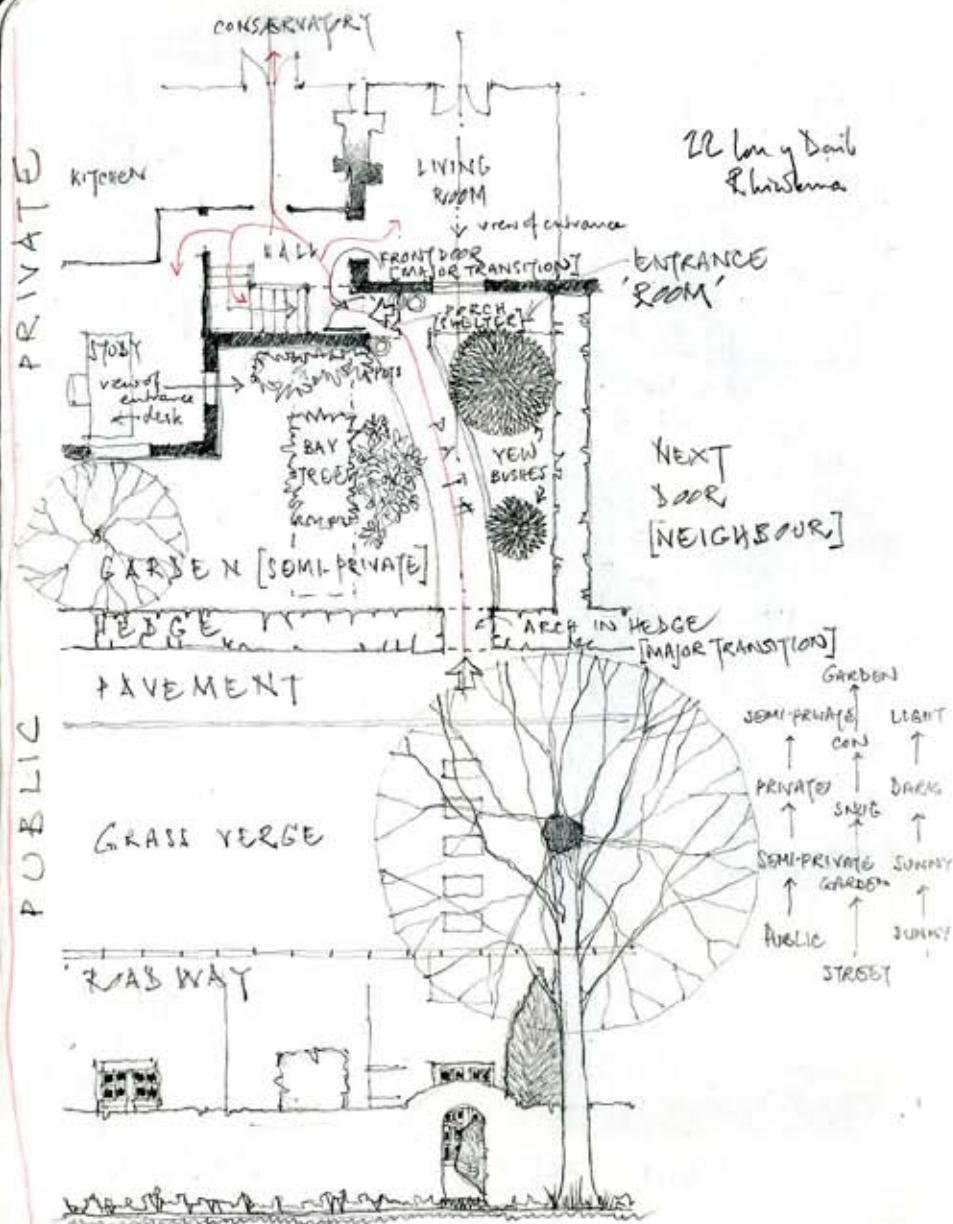 CONSERVATORY
22 Lon y Dail
Rhiwbina
PRIVATE
KITCHEN
LIVING
ROOM
view of entrance
HALL
FRONT DOOR
[MAJOR TRANSITION]
ENTRANCE
'ROOM'
PORCH
[SHELTER]
STUDY
view of
entrance
desk
POTS
BAY
TREES
YEW
BUSHES
NEXT
DOOR
[NEIGHBOUR]
GARDEN [SEMI-PRIVATE]
HEDGE
ARCH IN HEDGE
[MAJOR TRANSITION]
PAVEMENT
PUBLIC
GRASS VERGE
ROADWAY
GARDEN
SEMI-PRIVATE
LIGHT
CON
PRIVATE
DARK
SNUG
SEMI-PRIVATE
SUNNY
GARDEN
PUBLIC
SUNNY
STREET